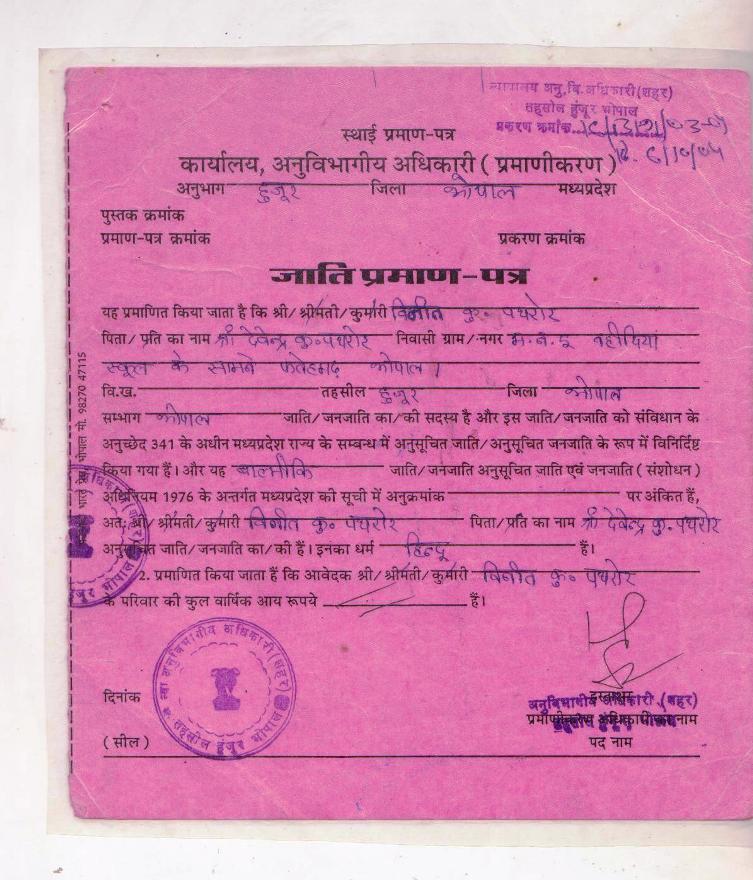 न्यायालय अनु.वि.अधिकारी(शहर)
तहसील हुंजूर भोपाल
प्रकरण क्रमांक
स्थाई प्रमाण-पत्र
कार्यालय, अनुविभागीय अधिकारी ( प्रमाणीकरण )
अनुभाग हुजूर जिला भोपाल मध्यप्रदेश
पुस्तक क्रमांक
प्रमाण-पत्र क्रमांक प्रकरण क्रमांक
जाति प्रमाण-पत्र
यह प्रमाणित किया जाता है कि श्री/ श्रीमती/कुमारी विनीत कु. पथरोर
पिता/ प्रति का नाम श्री देवेन्द्र कु. पथरोर निवासी ग्राम/ नगर म.नं.
स्कूल के सामने फतेहगढ़ भोपाल।
वि.ख. तहसील हुजूर जिला भोपाल
सम्भाग भोपाल जाति/जनजाति का/की सदस्य है और इस जाति/जनजाति को संविधान के
अनुच्छेद 341 के अधीन मध्यप्रदेश राज्य के सम्बन्ध में अनुसूचित जाति/अनुसूचित जनजाति के रूप में विनिर्दिष्ट
किया गया हैं। और यह बाल्मीकि जाति/ जनजाति अनुसूचित जाति एवं जनजाति ( संशोधन )
अधिनियम 1976 के अन्तर्गत मध्यप्रदेश की सूची में अनुक्रमांक पर अंकित हैं,
अतः श्री/ श्रीमती/ कुमारी विनीत कु. पथरोर पिता/प्रति का नाम श्री देवेन्द्र कु. पथरोर
अनुसूचित जाति/जनजाति का/की हैं। इनका धर्म हिन्दू हैं।
2. प्रमाणित किया जाता हैं कि आवेदक श्री/ श्रीमती/कुमारी विनीत कु. पथरोर
के परिवार की कुल वार्षिक आय रूपये हैं।
न्या अनुविभागीय अधिकारी (शहर)
तहसील हुंजूर भोपाल
दिनांक
हस्ताक्षर
अनुविभागीय अधिकारी (शहर)
नाम
( सील ) पद नाम
भोपाल मो. 98270 47115